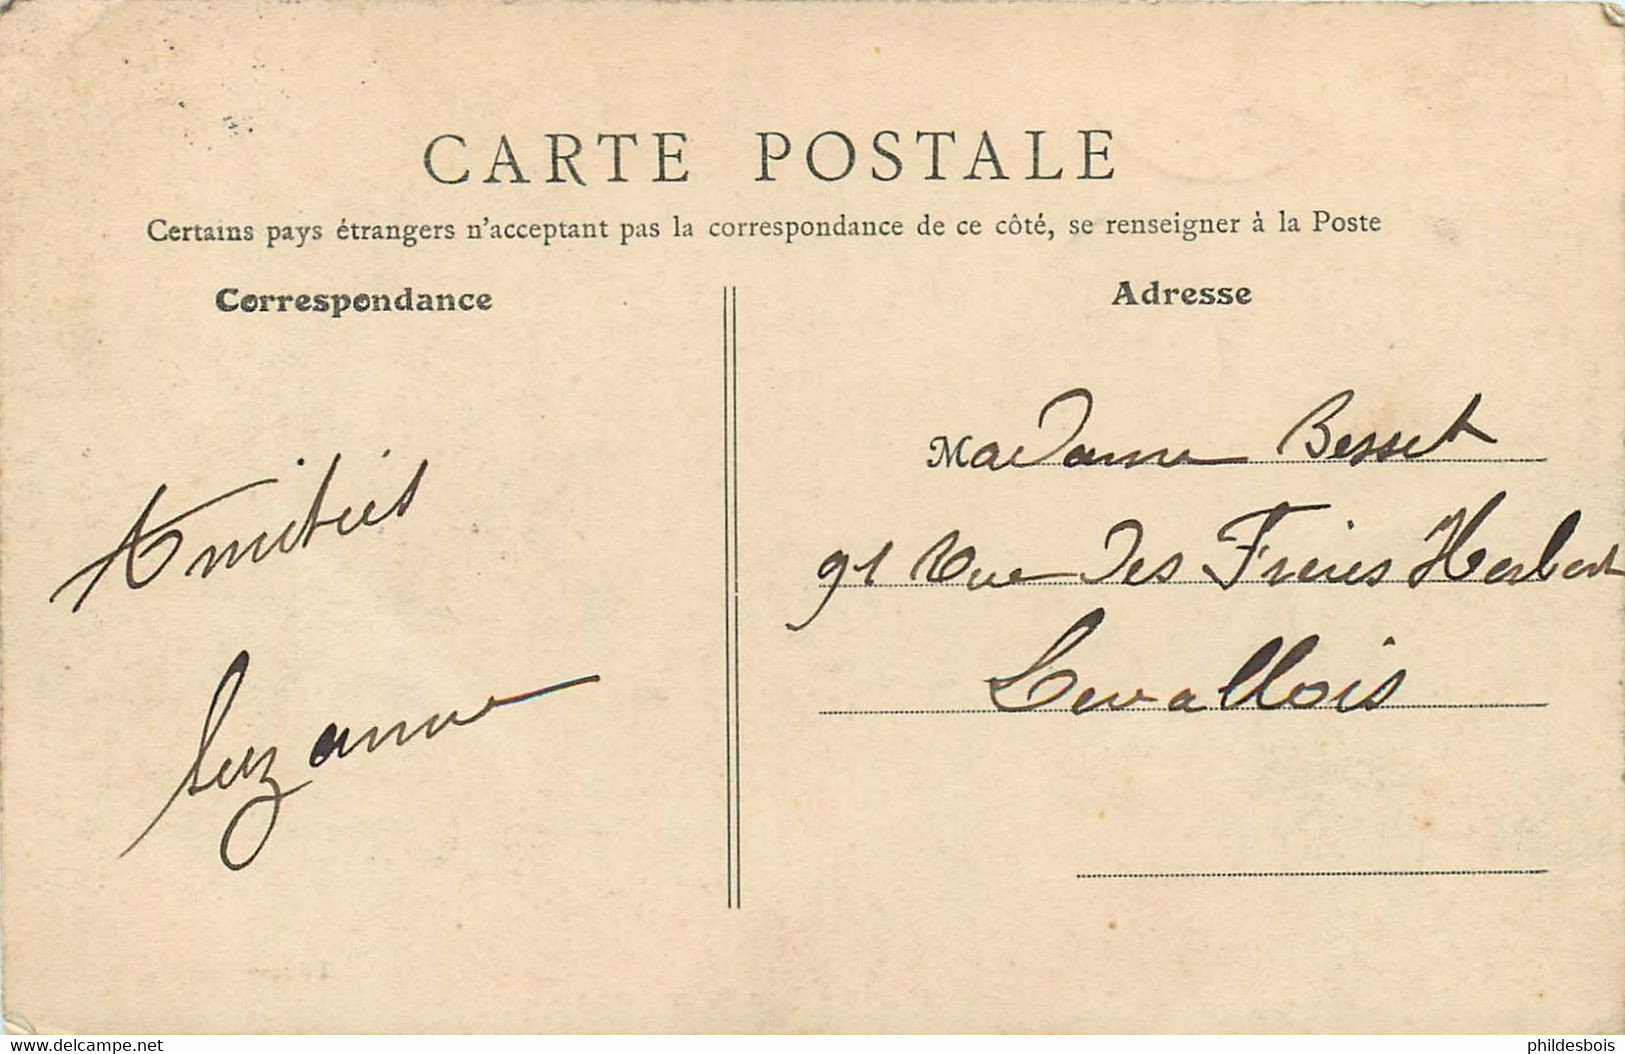 CARTE POSTALE
Certains pays étrangers n'acceptant pas la correspondance de ce côté, se renseigner à la Poste
Correspondance
Adresse
Amitiés
Suzanne
Madame Besset
91 Rue des Frères Herbert
Levallois
www.delcampe.net
phildesbois